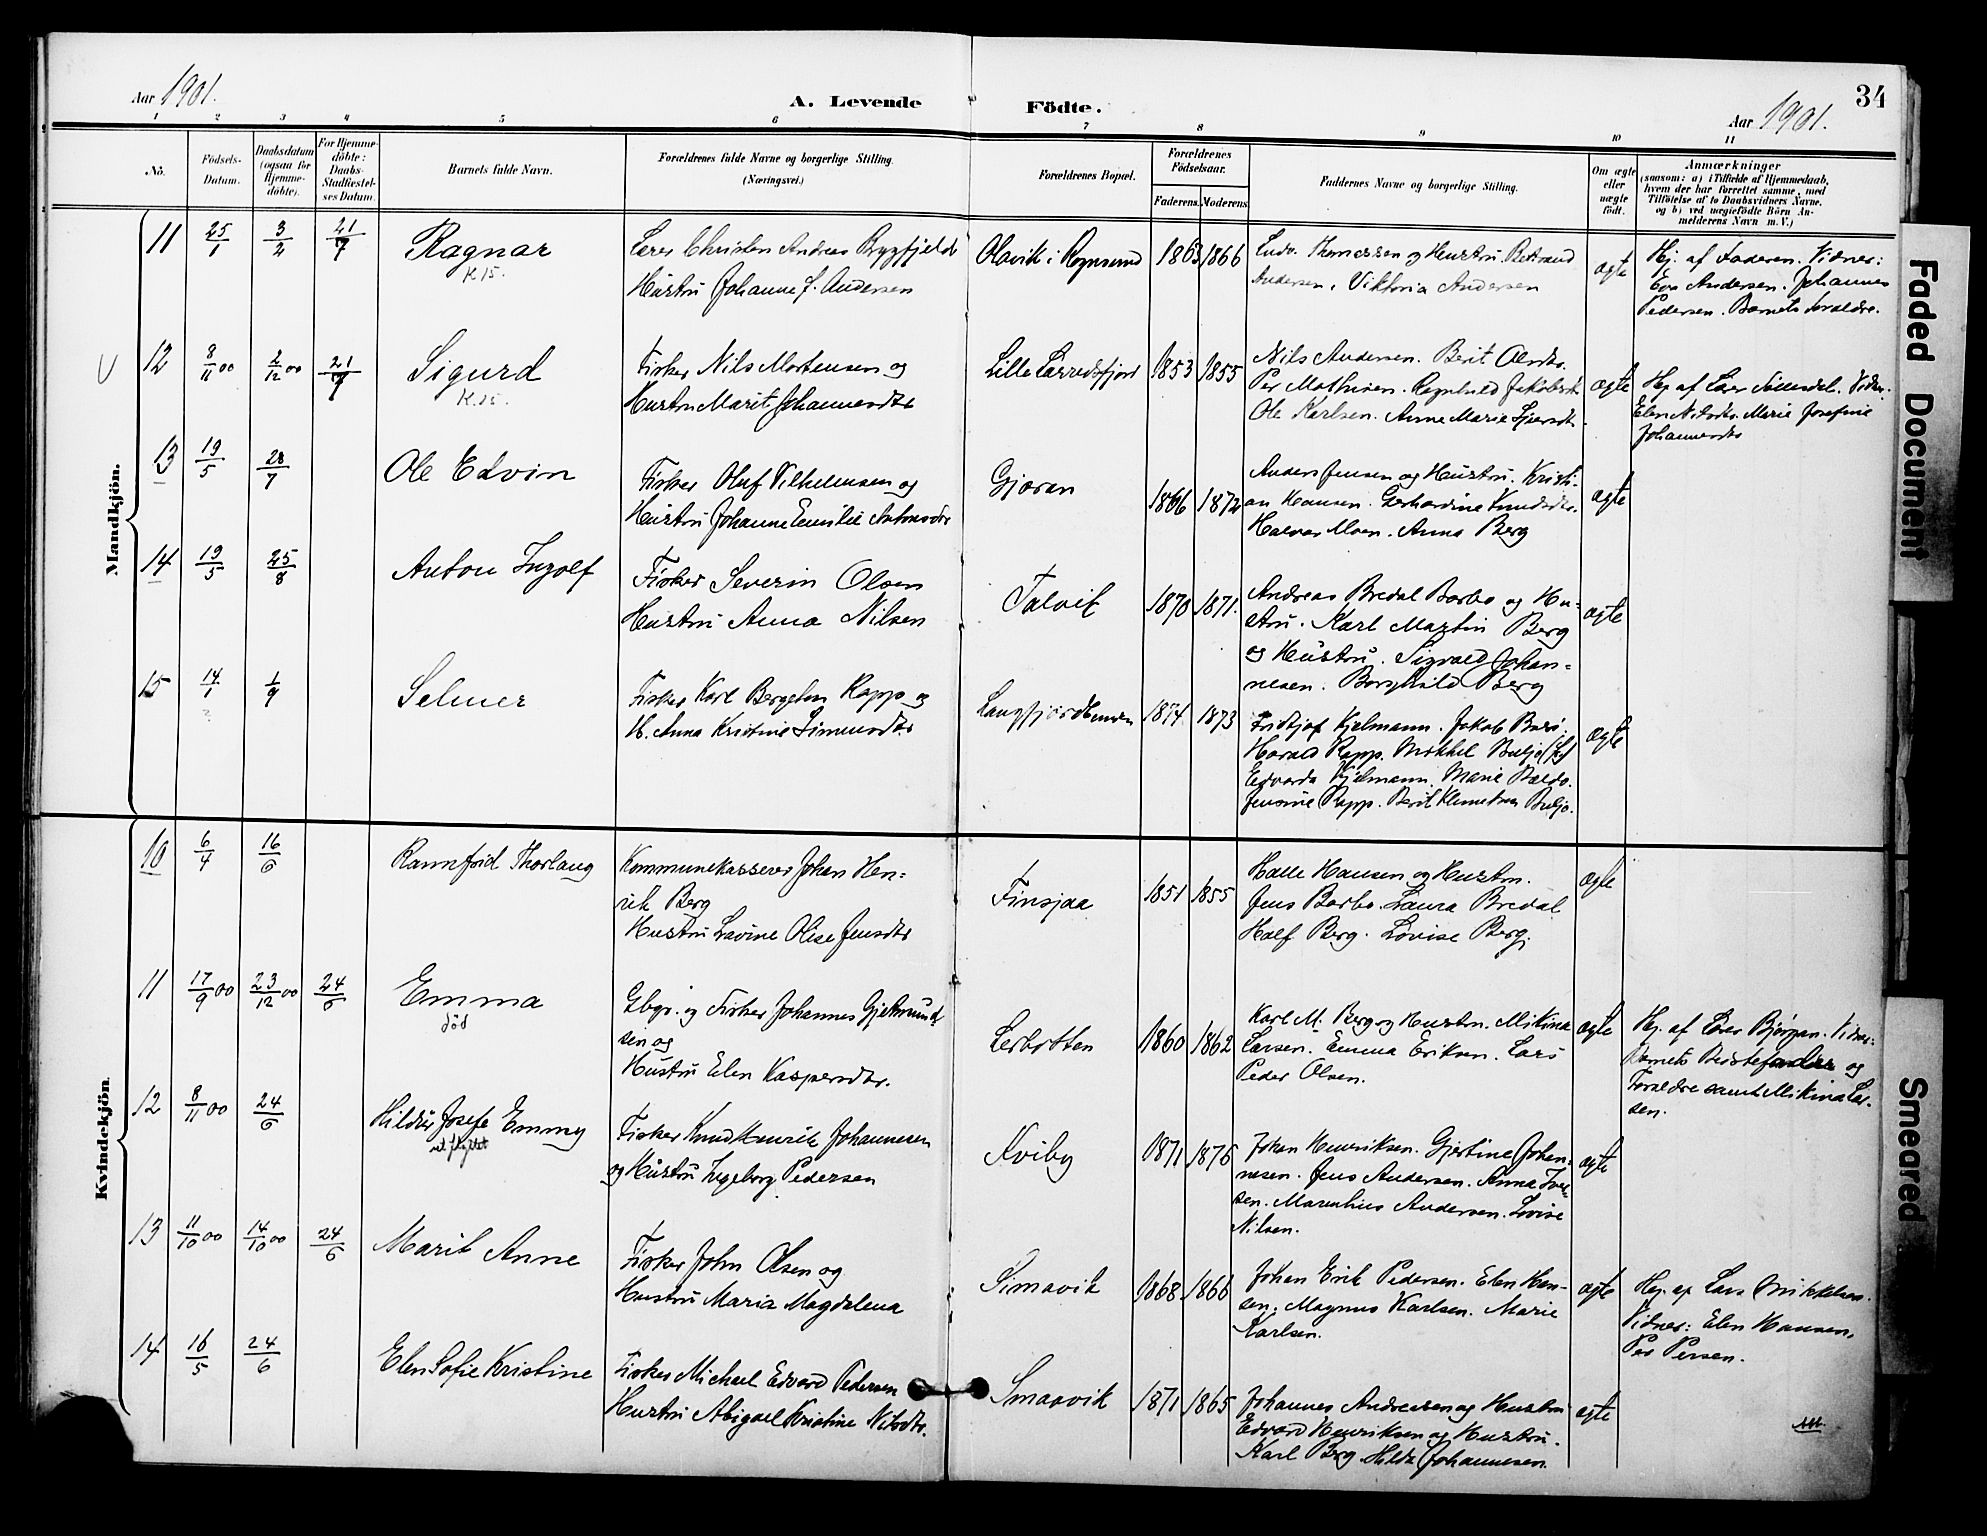 Aar 1901.
A. Levende Födte.
Aar 1901.
34
1 2 3 4 5 6 7 8 9 10 11
No.
Födsels-Datum.
Daabsdatum (ogsaa for Hjemme-döbte).
For Hjemme-döbte: Daabs-Stadfæstel-ses Datum.
Barnets fulde Navn.
Forældrenes fulde Navne og borgerlige Stilling. (Næringsvei.)
Forældrenes Bopæl.
Forældrenes Födselsaar.
Faderens. Moderens.
Faddernes Navne og borgerlige Stilling.
Om ægte eller uægte födt.
Anmærkninger
(saasom: a) i Tilfælde af Hjemmedaab,
hvem der har forrettet samme, med
Tilföielse af to Daabsvidners Navne.
og b) ved uægtefödte Börn An-
melderens Navn m. V.)
Mandkjön.
11 25/1 3/2 21/7 Ragnar
K 15.
Lærer Christen Andreas Brygfjeld
Hustru Johanne J. Andersen
Olavik i Rognsund 1863 1866
Ludv. Thomassen og Hustru.
Andersen, Viktoria Andersen
ægte
Hj. af Faderen. Vidner:
Eva Andersen. Johannes
Pedersen. Barnets Foreldre.
12 8/11 00 2/12 00 21/7 Sigurd
K. 15.
Fisker Nils Mortensen og
Hustru Marit Johannesdtr
Lille Lerredsfjord 1853 1855
Nils Andersen. Berit Olsdtr.
Per Mathisen. Ragnhild Jakobsdt.
Ole Karlsen. Anne Marie
ægte
Hj. af Lærer Vidn.
Elen Nilsdtr. Marie Josefine
Johannesdtr
13 19/5 28/7 Ole Edvin
Fisker Oluf Vilhelmsen og
Hustru Johanne Emilie Antonsdtr
Gjøran 1866 1872
Anders Jensen og Hustru. Kristi-
an Hansen. Gerhardine Knudsdtr.
Halvar Moen. Anna Berg
ægte
14 19/5 25/8 Anton Ingolf
Fisker Severin Olsen
Hustru Anna Nilsen
Talvik 1870 1871.
Andreas Bredal Barbo og Hu-
stru. Karl Martin Berg
og Hustru. Sigvald Johan-
nesen. Borghild Berg
ægte
15 14/1 1/9 Selmer
?
Fisker Karl Bergeton Rapp og
H. Anna Kristine Simonsdtr
Langfjordbunden 1874. 1873
Fridtjof Kjelmann. Jakob
Harald Rapp. Mikkel Buljo
Edvarda Kjelmann. Marie Baldo.
Jensine Rapp. Berit Klemetsen Buljo.
ægte
Kvindekjön.
10 6/4 16/6 Rannfrid Thorlaug
Kommunekasserer Johan Hen-
rik Berg
Hustru Lavine Olise Jensdtr
Finsjaa 1851 1855
Halle Hansen og Hustru.
Jens Barbo. Laura Bredal
Half Berg. Lovise Berg.
ægte
11 17/9 00 23/12 00 24/6 Emma
död
Gbgr. og Fisker Johannes Gjetmund-
sen og
Hustru Elen Kaspersdtr.
Lerbotten 1860 1862
Karl M. Berg og Hustru. Mikina
Larsen. Emma Eriksen. Lars
Peder Olsen.
ægte
Hj. af Lærer Bjørgan. Vidner:
Barnets Bedstefader og
Foreldre samt Mikina Lar-
sen.
12 8/11 00 24/6 Hildur Josefa Emmy
ut flyttet
Fisker Knud Henrik Johannesen
og Hustru Ingeborg Pedersen
Kviby 1871 1876
Johan Henriksen. Gjertine Johan-
nesen. Jens Andersen. Anna Iver-
sen. Marenhius Andersen. Lovise
Nilsen.
ægte
13 11/10 00 14/10 00 24/6 Marit Anne
Fisker John Olsen og
Hustru Maria Magdalena
Simavik 1868 1866
Johan Erik Pedersen. Elen Han-
sen. Magnus Karlsen. Marie
Karlsen.
ægte
Hj. af Lars Mikkelsen.
Vidner: Elen Hansen,
Per Persen.
14 16/5 24/6 Elen Sofie Kristine
Fisker Michael Edvard Pedersen
Hustru Abigael Kristine Nilsdtr.
Smaavik 1871 1865
Johannes Andreassen og Hustru
Edvard Henriksen og Hustru.
Karl Berg. Hilda Johannesen.
ægte
Faded Document
Smeared